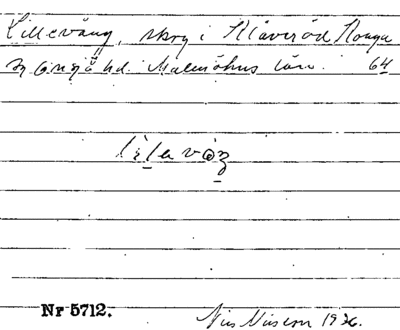 Lillevång, skog i Klåveröd Konga
sn Onsjö hd. Malmöhus län. 64
Nr 5712.
Nils Nilsson 1936.